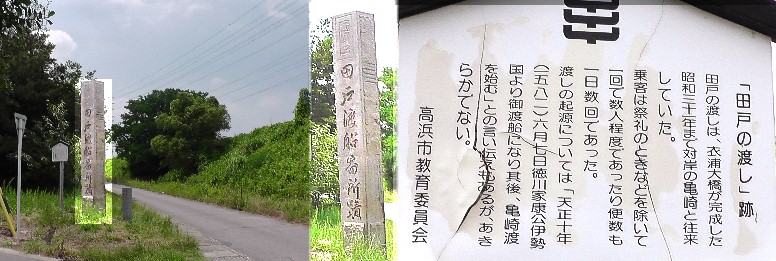 田戸渡船番所蹟
「田戸の渡し」跡
田戸の渡しは、衣浦大橋が完成した
昭和三十一年まで対岸の亀崎と往来
していた。
乗客は祭礼のときなどを除いて
一回で数人程度であったり便数も
一日数回であった。
渡しの起源については「天正十年
(一五八二)六月七日徳川家康公伊勢
国より御渡船になり其後、亀崎渡
を始むとの言い伝えもあるが あき
らかでない。
高浜市教育委員会